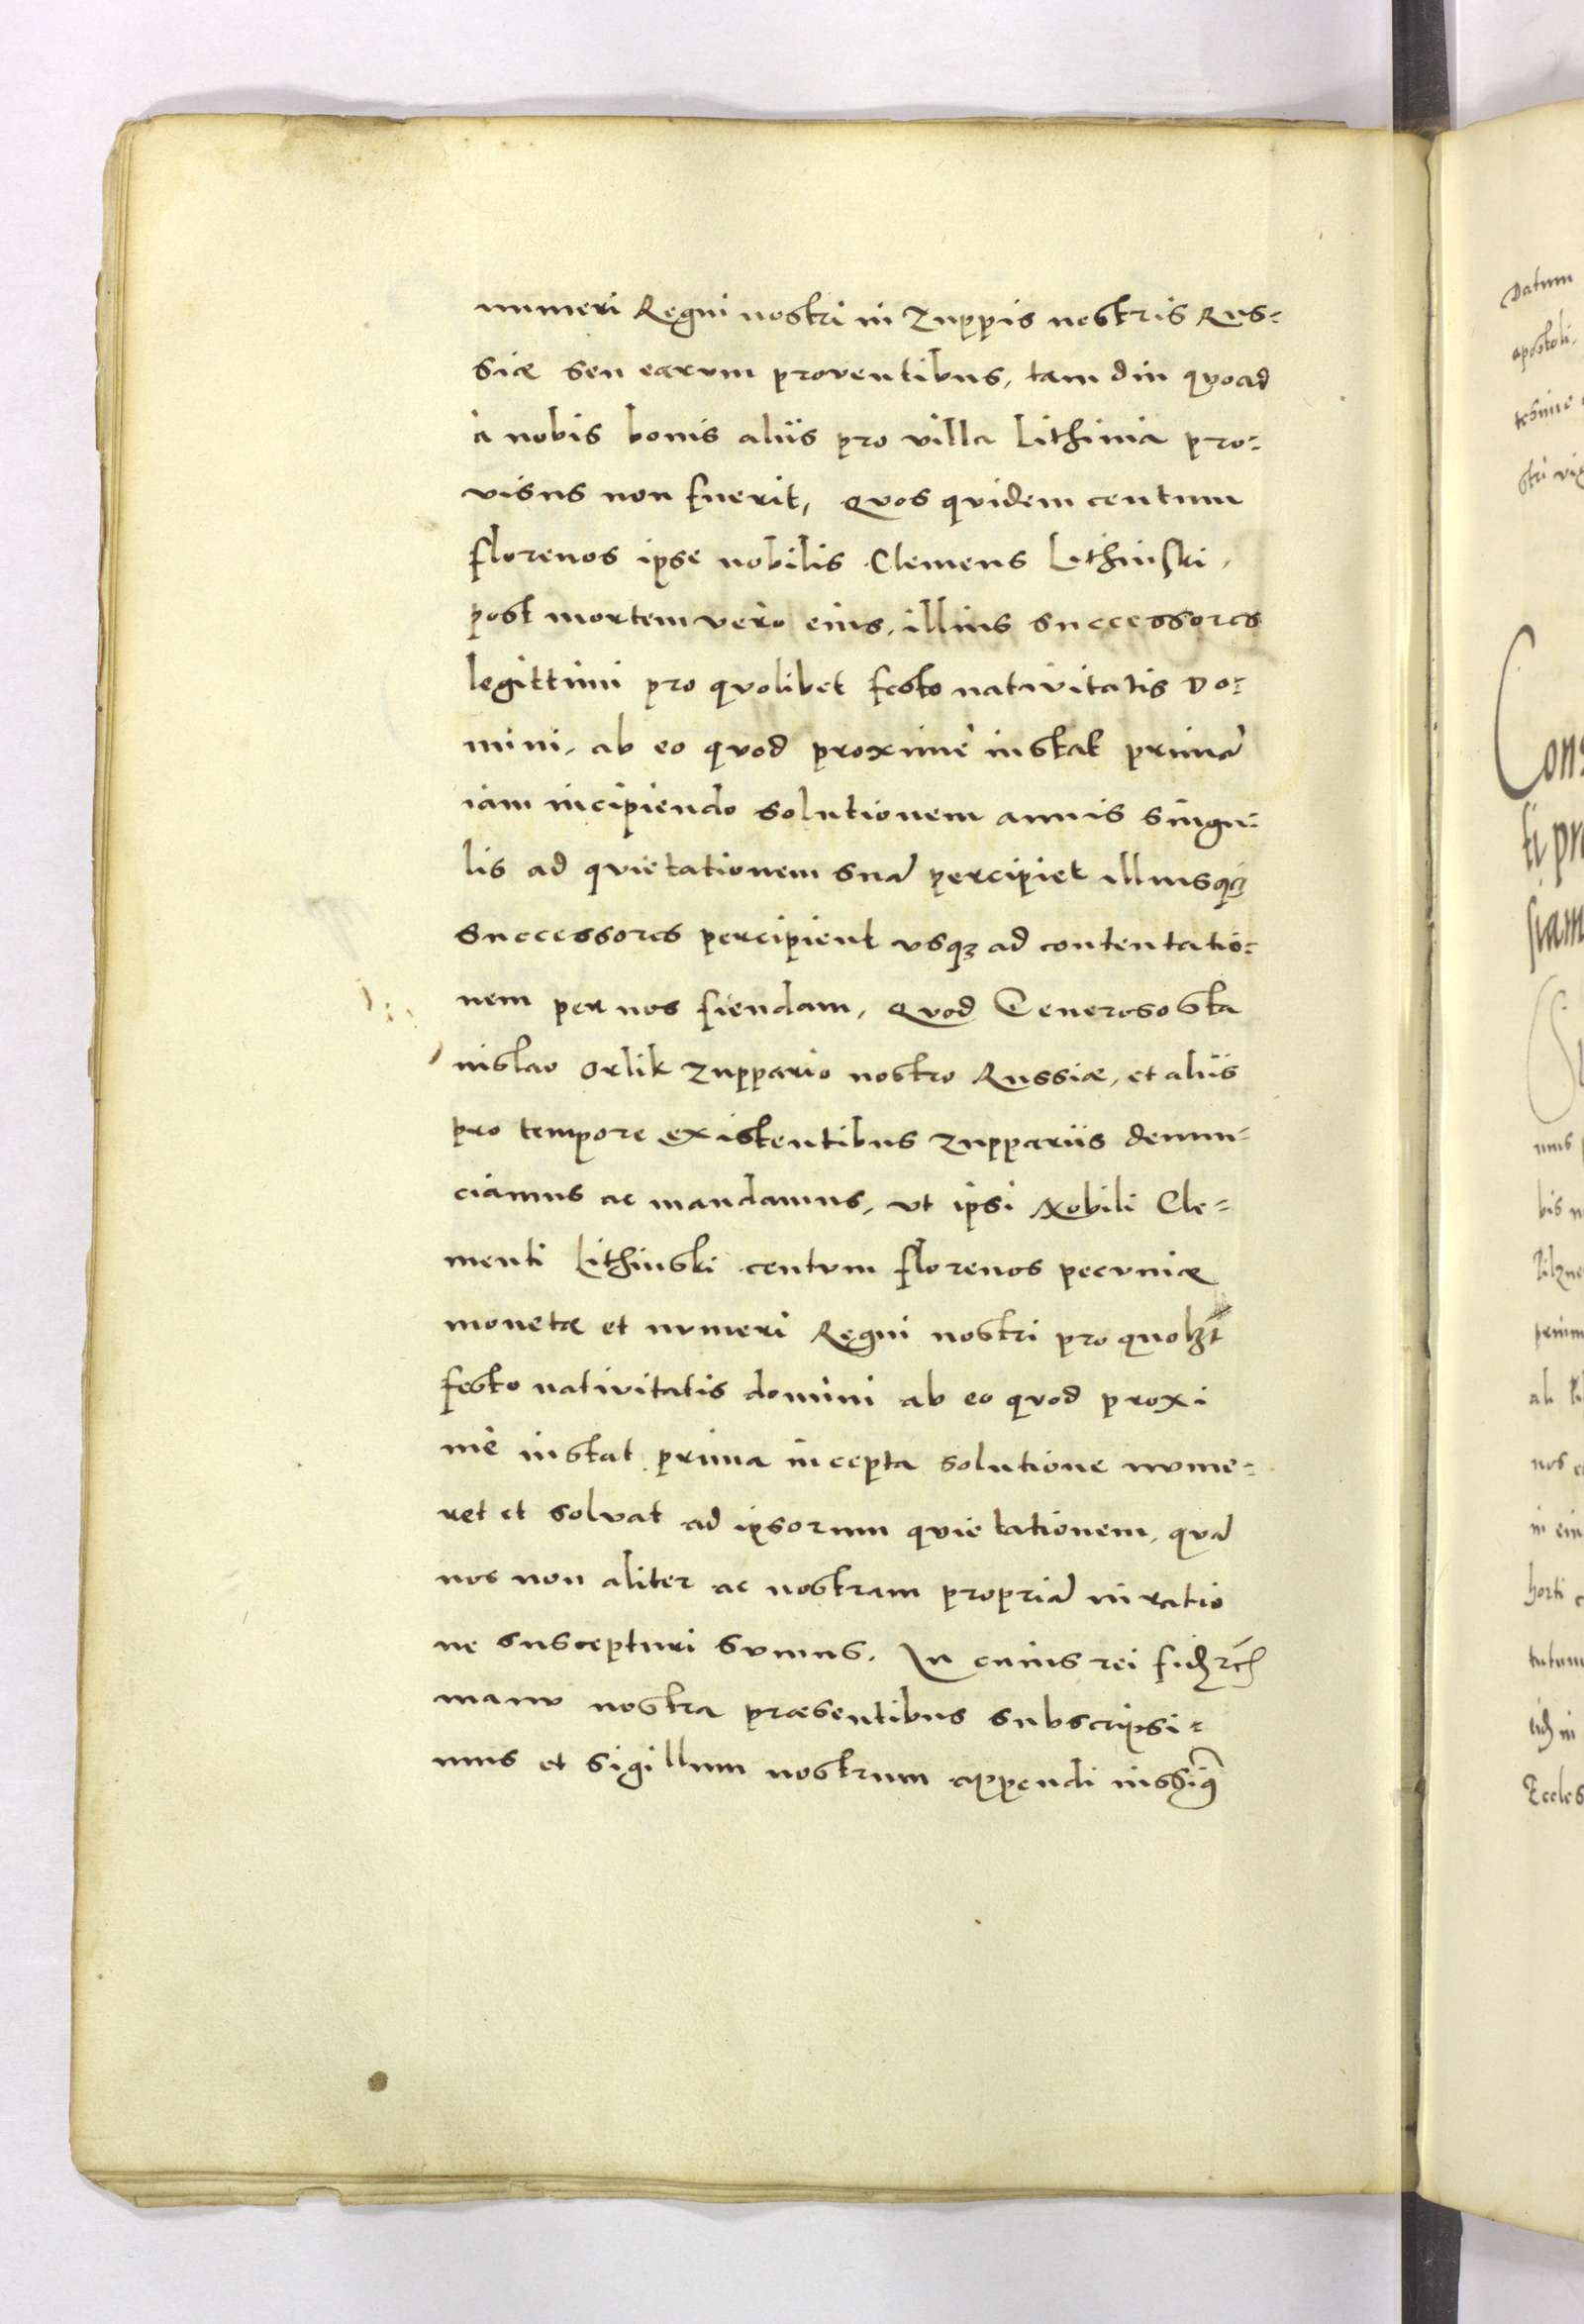 numeri Regni nostri in Zuppis nostris Rus=
siæ seu earum proventibus, tam diu quoad
à nobis bonis aliis pro villa Lithinia pro=
visus non fuerit, Quos quidem centum
florenos ipse nobilis Clemens Lithinski,
post mortem vero eius, illius successores
legittimi pro quolibet festo nativitatis Do=
mini, ab eo quod proximè instat primā
iam incipiendo solutionem annis singu=
lis ad quietationem suā percipiet illiusqȝ
successores percipient usqȝ ad contentatio=
nem per nos fiendam, Quod Generoso Sta
nislao Orlik Zuppario nostro Russiæ, et aliis
pro tempore existentibus zuppariis denun=
ciamus ac mandamus, ut ipsi Nobili Cle=
menti Lithinski centum florenos pecuniæ
monetæ et numeri Regni nostri pro quolȝt
festo nativitatis domini ab eo quod proxi
mè instat prima incepta solutione nume=
ret et solvat ad ipsorum quietationem, quā
nos non aliter ac nostram propriā in ratio
ne suscepturi sumus. In cuius rei fidȝ rc̄
manu nostra præsentibus subscripsi=
mus et sigillum nostrum appendi iussimꝰ
Datum
apostoli,
tesimo
stri vig
Cons
ti pr
siam
mus
bis n
Pilzne
prim
ali
nos
in ein
horti c
tutum
in
Eccles